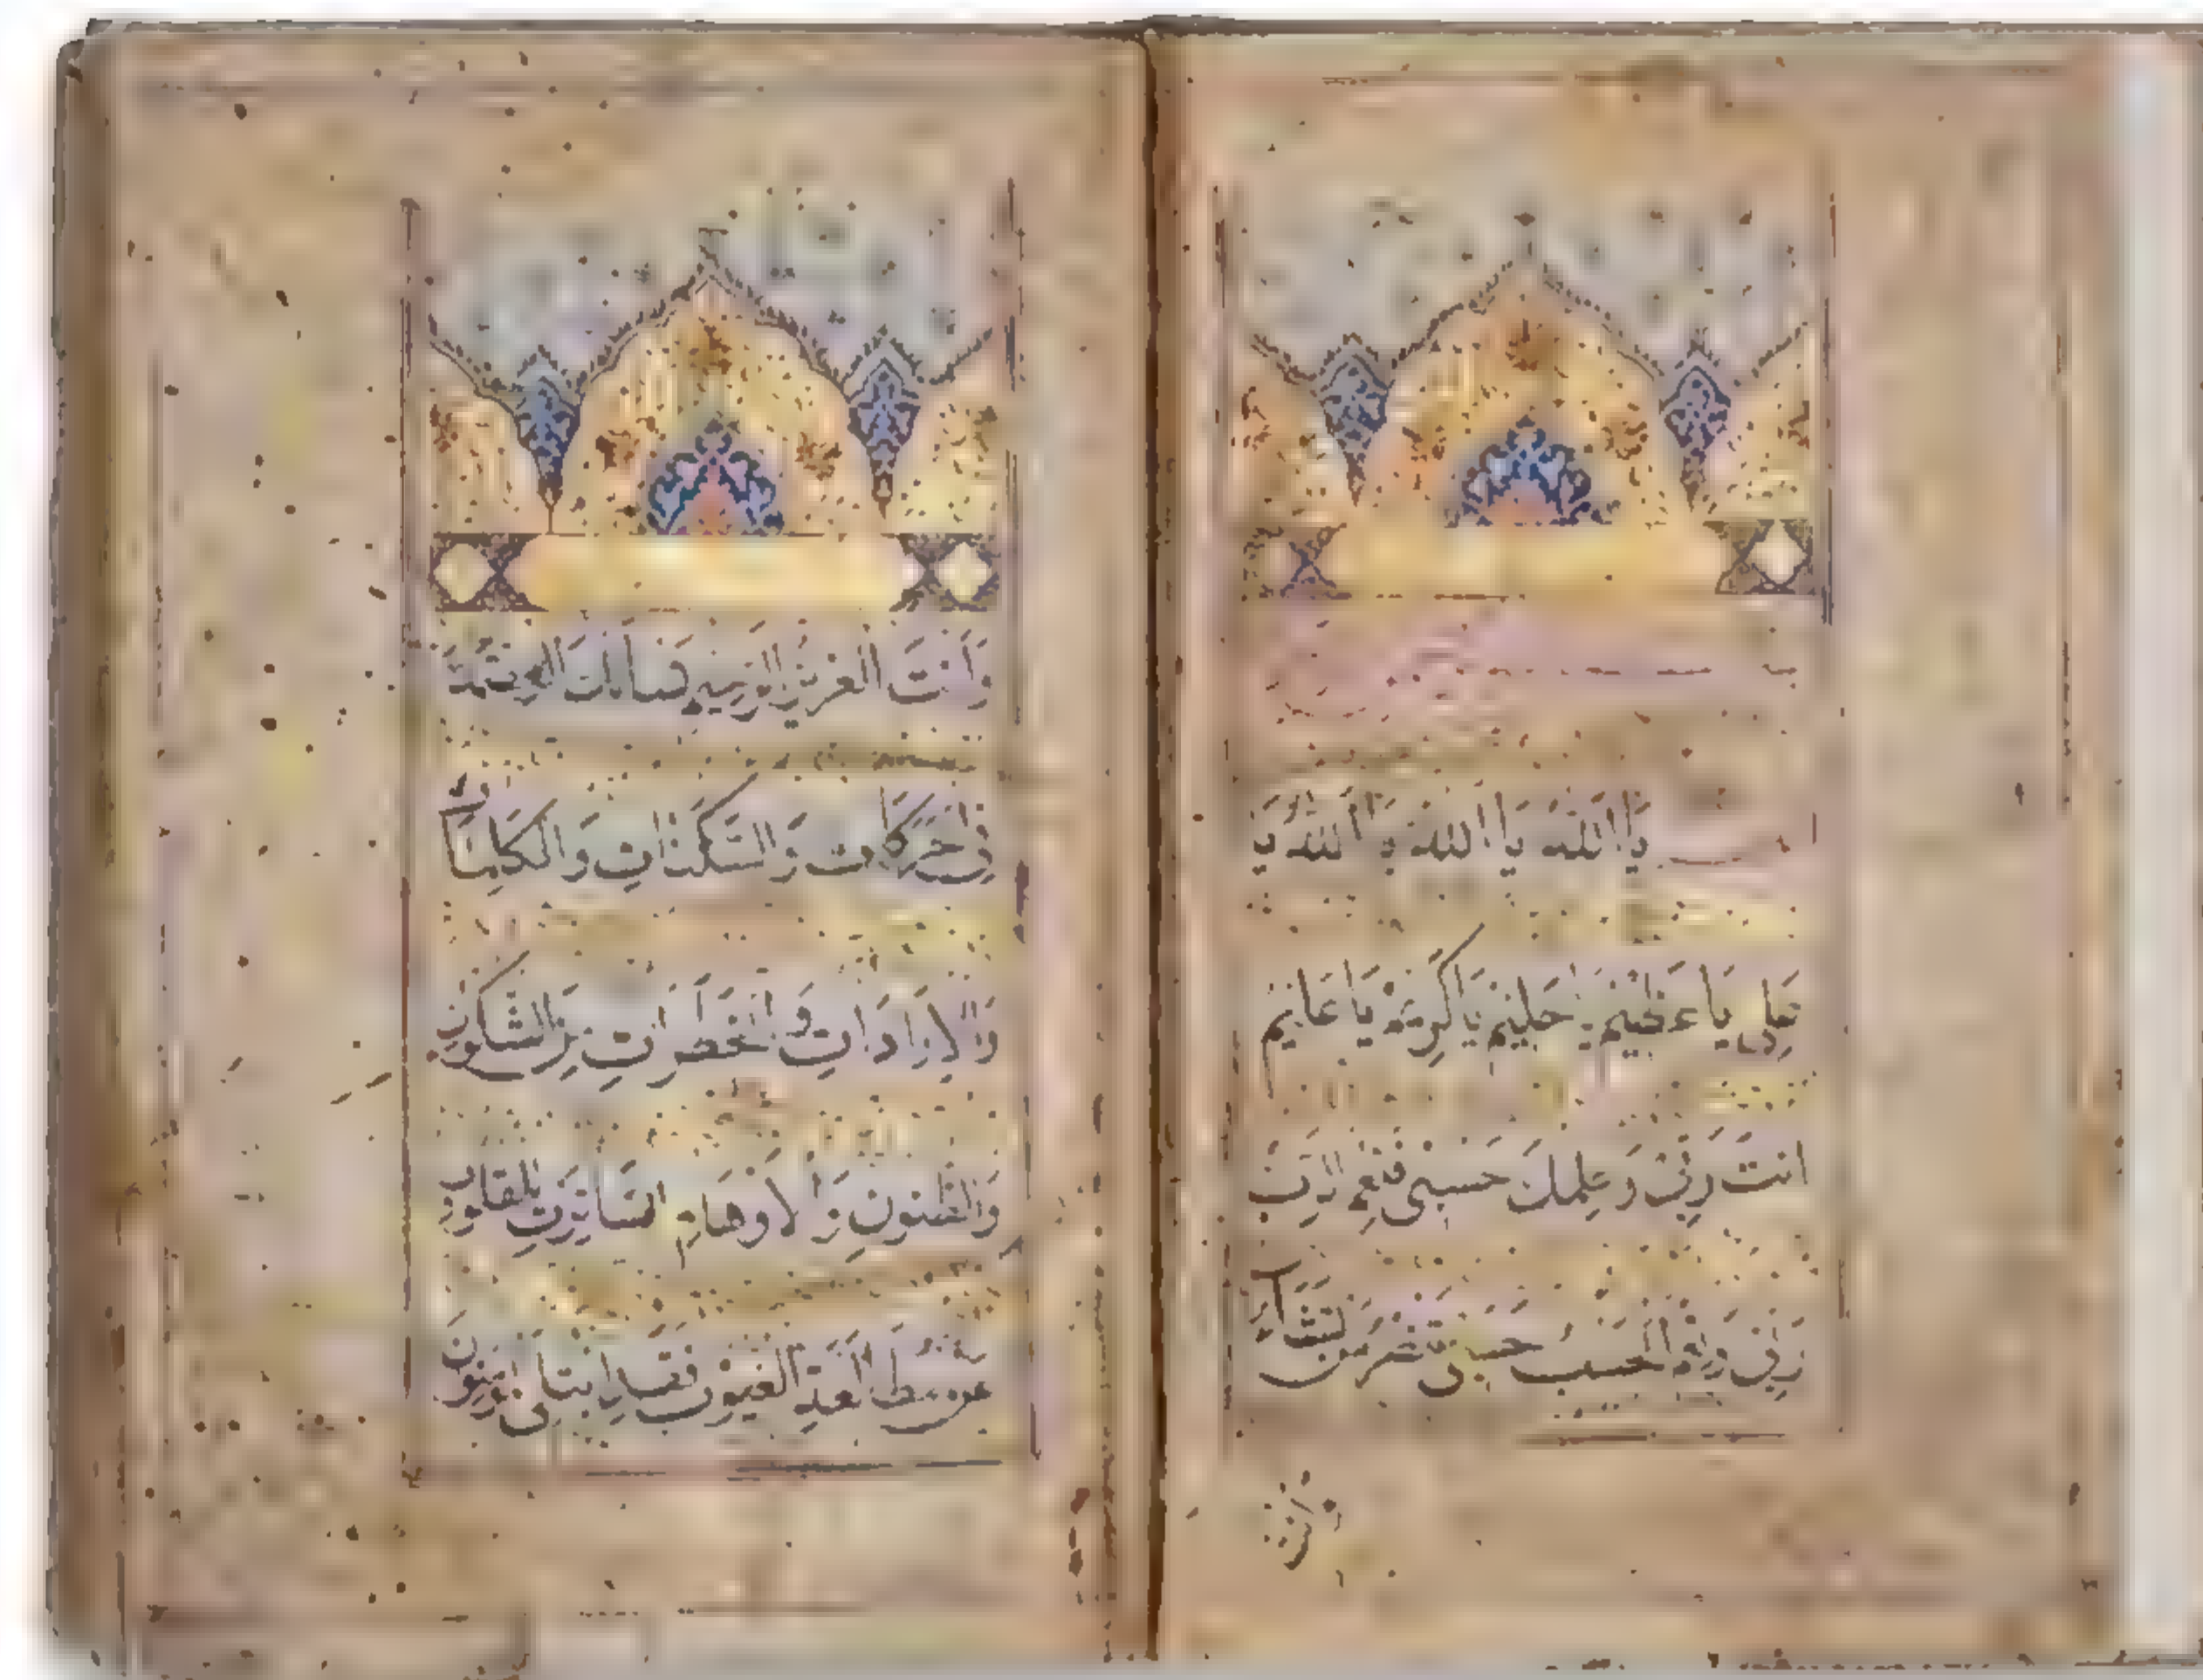 يَا اَللّٰهُ يَا اَللّٰهُ يَا اَللّٰهُ يَا
عَلِيُّ يَا عَظِيْمُ يَا حَلِيْمُ يَا كَرِيْمُ يَا عَلِيْمُ
اَنْتَ رَبِّيْ وَعِلْمُكَ حَسْبِيْ فَنِعْمَ الرَّبُّ
رَبِّيْ وَنِعْمَ الْحَسْبُ حَسْبِيْ تَنْصُرُ مَنْ تَشَاءُ
وَاَنْتَ الْعَزِيْزُ الرَّحِيْمُ نَسْاَلُكَ الْعِصْمَةَ
فِي الْحَرَكَاتِ وَالسَّكَنَاتِ وَالْكَلِمَاتِ
وَالْاِرَادَاتِ وَالْخَطَرَاتِ مِنَ الشُّكُوْكِ
وَالظُّنُوْنِ وَالْاَوْهَامِ السَّاتِرَةِ لِلْقُلُوْبِ
عَنْ مُطَالَعَةِ الْغُيُوْبِ فَقَدِ ابْتُلِيَ الْمُؤْمِنُوْنَ